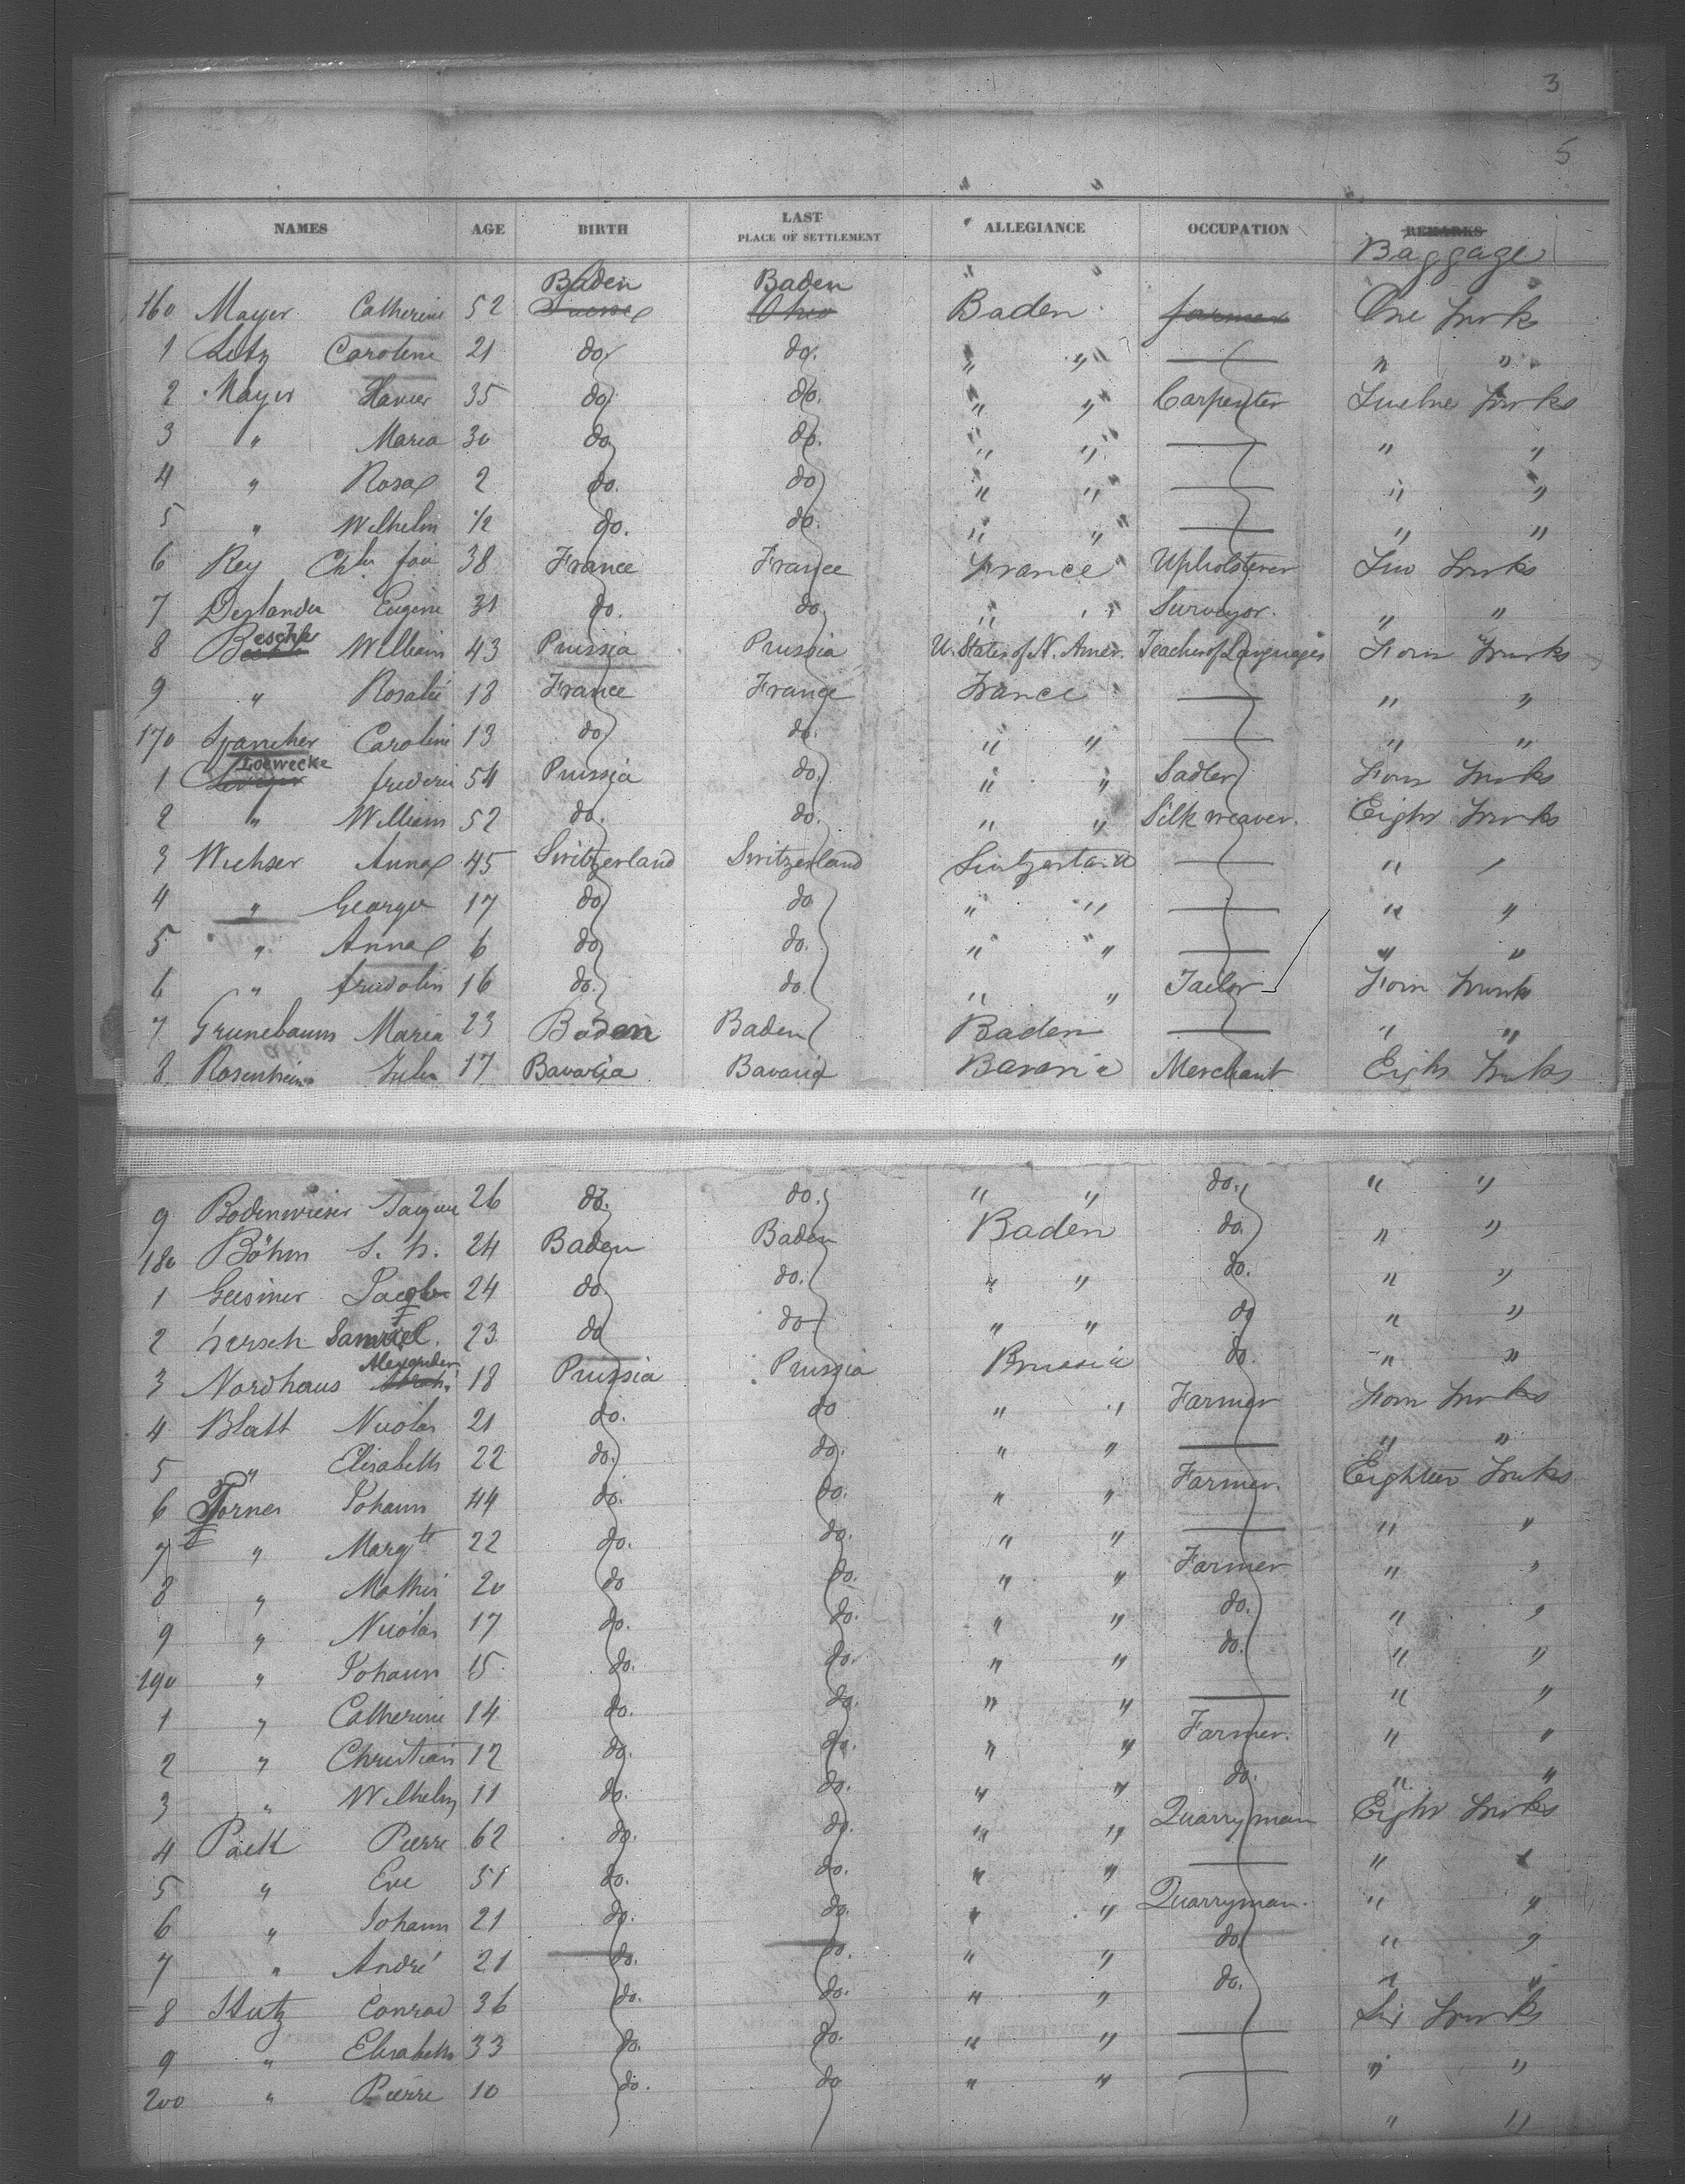 3
5
NAMES AGE BIRTH LAST PLACE OF SETTLEMENT ALLEGIANCE OCCUPATION REMARKS
Baggage
Baden Baden
160 Mayer Catherine 52 Ohio Baden farmer One trunks
1 Letz Caroline 21 do do. " " — " "
2 Mayer Xavier 35 do do. " " Carpenter Twelve trunks
3 " Maria 30 do do. " " — " "
4 " Rosa 2 do. do " " — " "
5 " Wilhelm 1/2 do. do. " " — " "
6 Rey 38 France France France Upholsterer Two trunks
7 Deslandes Eugene 31 do. do. " " Surveyor. " "
8 Beschke William 43 Prussia Prussia U. States of N. Amer. Teacher of Languages Four trunks
9 " Rosalie 13 France France France — " "
170 Caroline 13 do do. " " — " "
Loewecke
1 frederic 54 Prussia do. " " Sadler Four trunks
2 " William 52 do. do. " " Silk weaver. Eight trunks
3 Wichser Anna 45 Switzerland Switzerland Switzerland — " "
4 " George 17 do do " " — " "
5 " Anna 6 do do. " " — " "
6 " fridolin 16 do. do. " " Tailor Four trunk
7 Grunebaum Maria 23 Baden Baden Baden — " "
8 Rosenheim 17 Bavaria Bavaria Bavaria Merchant Eight trunks
9 Bodenwieser 26 do. do. " " do. " "
180 Böhm S. h. 24 Baden Baden Baden do. " "
1 Geismer Jacob 24 do do. " " do. " "
2 hersch Samuel. 23 do do " " do " "
Alexander
3 Nordhaus 18 Prussia Prussia Prussia do. " "
4 Blatt Nicolas 21 do. do " " Farmer Four trunks
5 " Elisabeth 22 do. do. " " — " "
6 Tornes Johann 44 do. do. " " Farmer. Eighteen trunks
7 " Margte 22 do. do. " " — " "
8 " Mathis 20 do do. " " Farmer " "
9 " Nicolas 17 do. do. " " do. " "
190 " Johann 15 do. do. " " do. " "
1 " Catherine 14 do. do. " " — " "
2 " Christian 12 do. do. " " Farmer. " "
3 " Wilhelm 11 do. do. " " do. " "
4 Paltt Pierre 62 do. do. " " Quarryman Eight trunks
5 " Eve 51 do. do. " " — " "
6 " Johann 21 do. do. " " Quarryman. " "
7 " André 21 do. do. " " do. " "
8 Stutz Conrad 36 do. do. " " do. Six trunks
9 " Elisabeth 33 do. do. " " — " "
200 " Pierre 10 do. do " " — " "